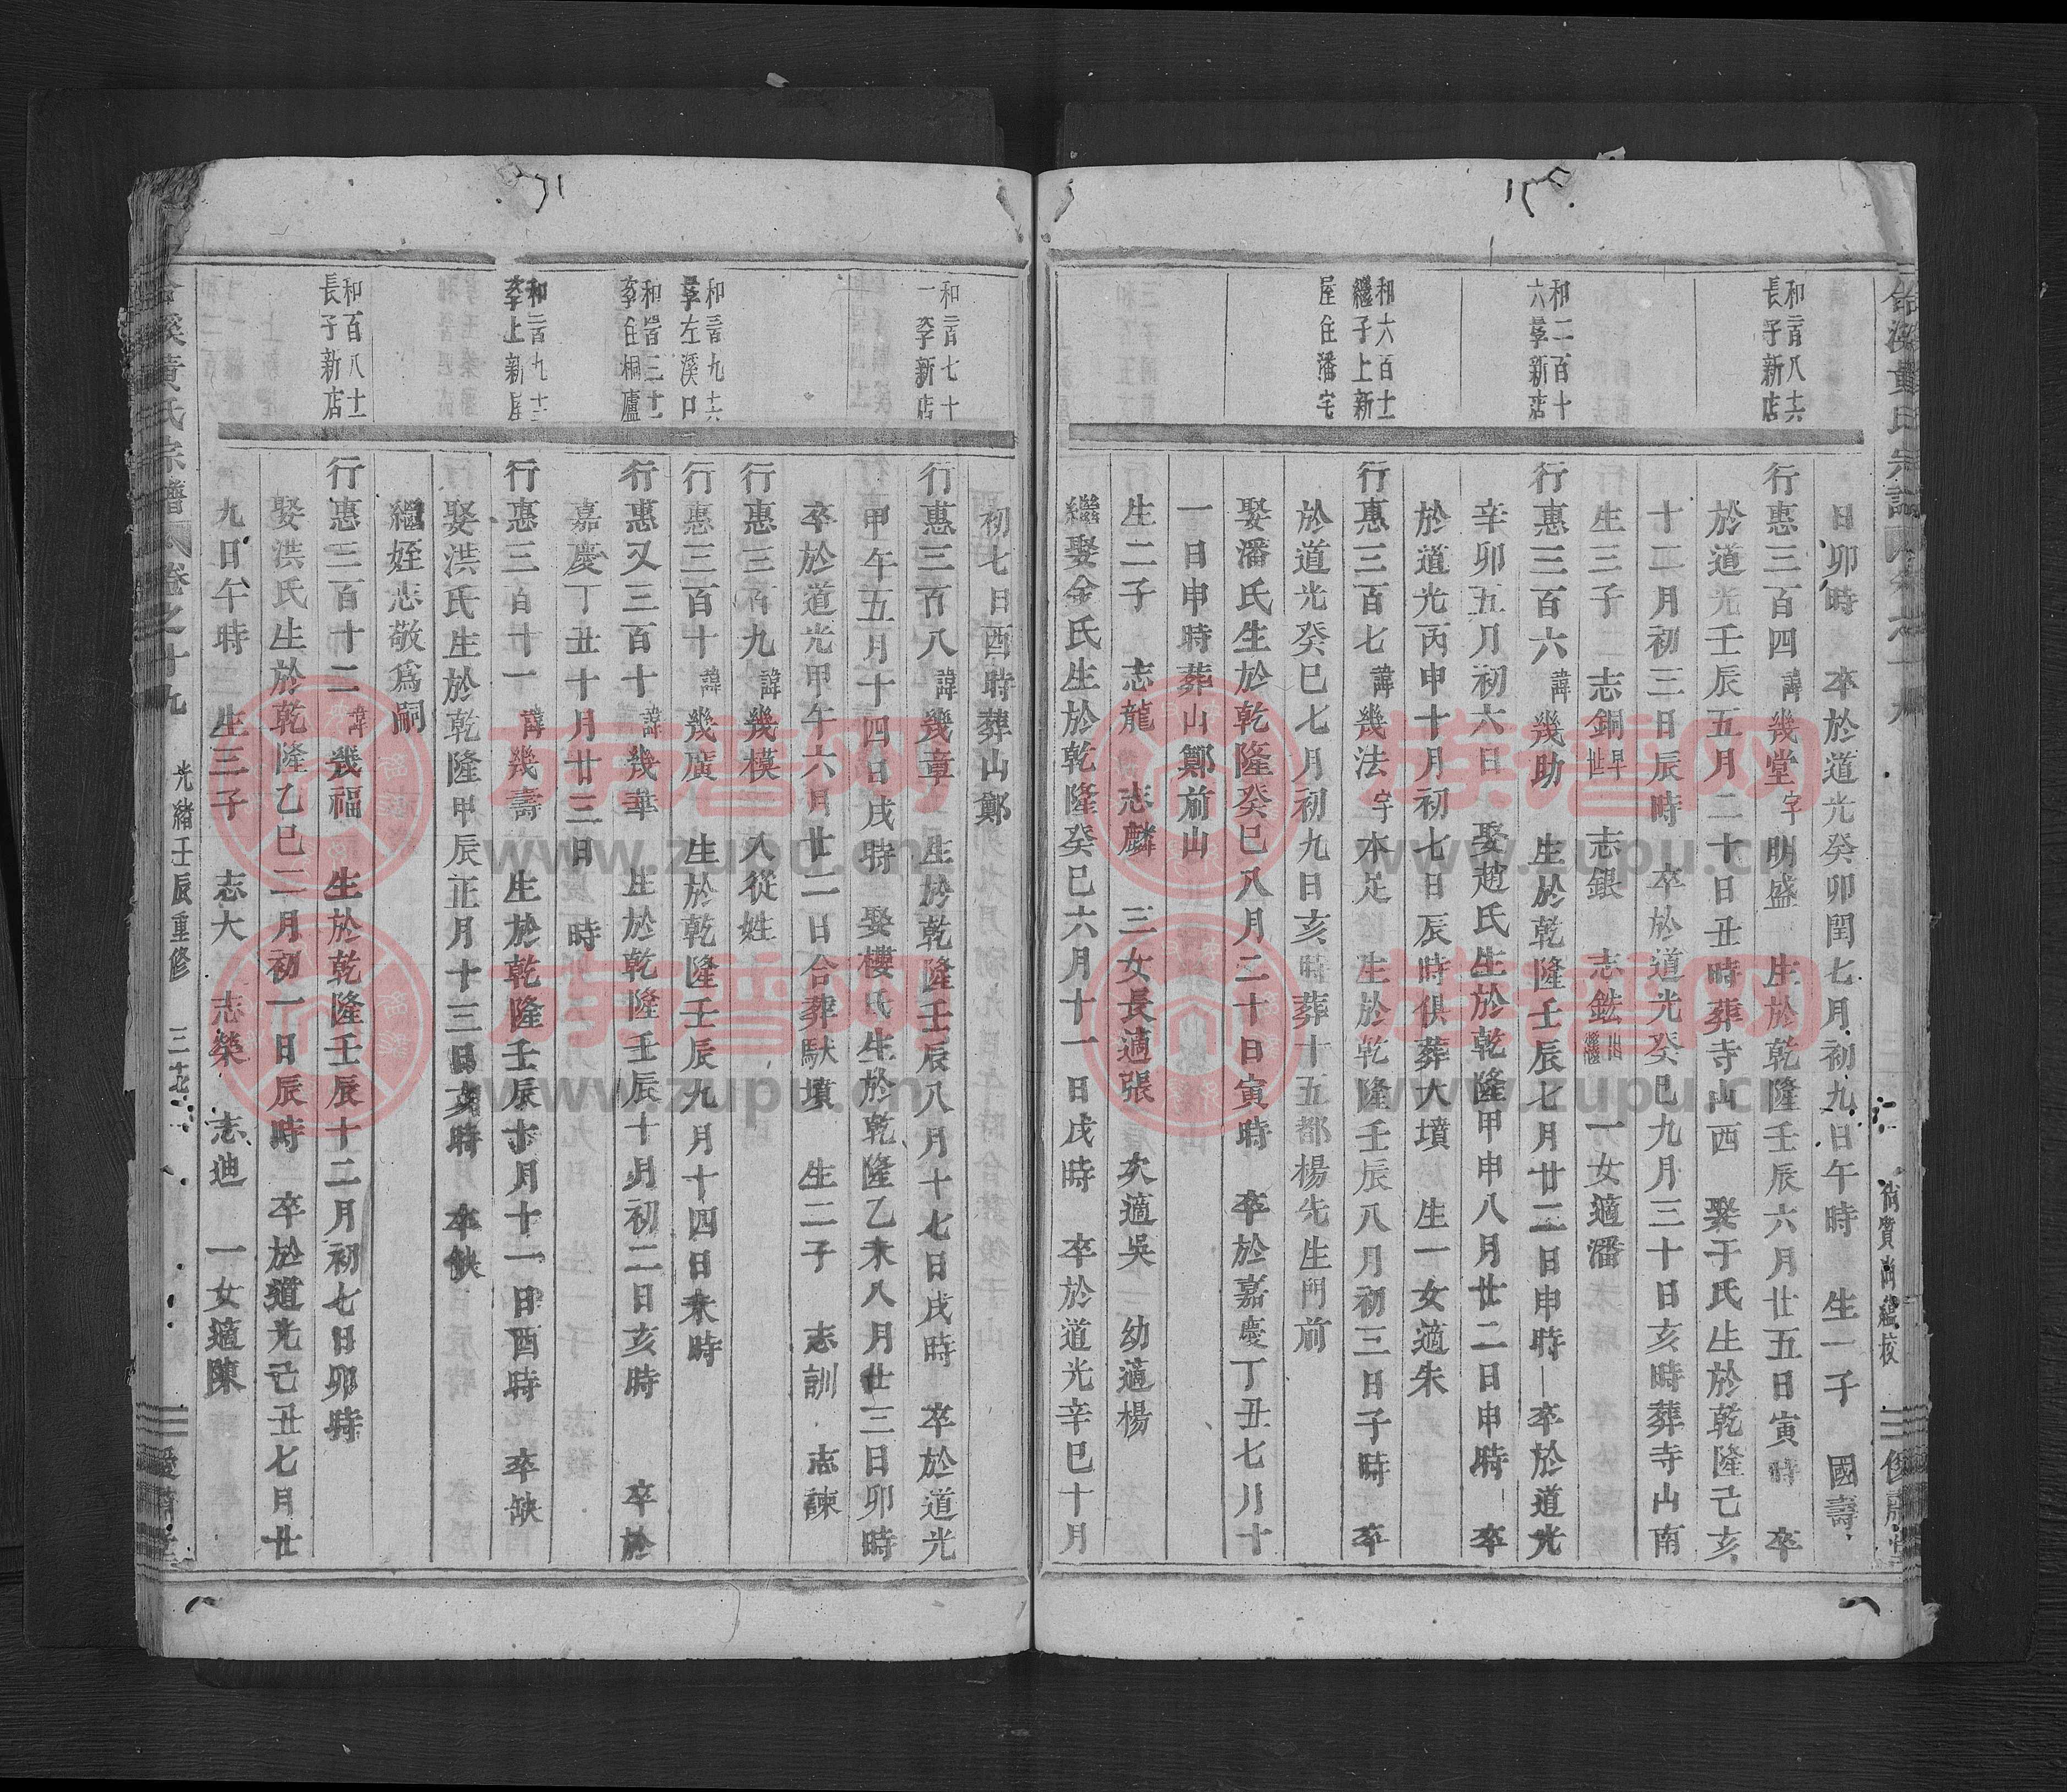 日卯時　卒於道光癸卯閏七月初九日午時　生一子　國壽
和二百八十六
長子新店
行惠三百四諱幾堂字明盛　生於乾隆壬辰六月廿五日寅時　卒
於道光壬辰五月二十日丑時葬寺山西　娶于氏生於乾隆己亥
十二月初三日辰時　卒於道光癸巳九月三十日亥時葬寺山南
生三子　志銅早世　志銀　志鉣出繼　一女適潘
和二百十
六葶新店
行惠三百六諱幾助　生於乾隆壬辰七月廿二日申時　卒於道光
辛卯五月初六日　娶趙氏生於乾隆甲申八月廿二日申時　卒
於道光丙申十月初七日辰時俱葬大墳　生一女適朱
和六百十
繼子上新
屋住潘宅
行惠三百七諱幾法字本足　生於乾隆壬辰八月初三日子時　卒
於道光癸巳七月初九日亥時葬十五都楊先生門前
娶潘氏生於乾隆癸巳八月二十日寅時　卒於嘉慶丁丑七月十
一日申時葬山鄭前山
生二子　志龍　志麟　三女長適張　次適吳　幼適楊
繼娶金氏生於乾隆癸巳六月十一日戌時　卒於道光辛巳十月
初七日酉時葬山鄭
和二百七十
一葶新店
行惠三百八諱幾章　生於乾隆壬辰八月十七日戌時　卒於道光
甲午五月十四日戌時　娶樓氏生於乾隆乙未八月廿三日卯時
卒於道光甲午六月廿二日合葬䭾墳　生二子　志訓　志諫
行惠三百九諱幾模　入從姓
和三百九十六
葶左溪口
行惠三百十諱幾廣　生於乾隆壬辰九月十四日未時
葶住桐廬
行惠又三百十諱幾華　生於乾隆壬辰十月初二日亥時　卒於
嘉慶丁丑十月廿三日　時
葶上新屋
行惠三百十一諱幾壽　生於乾隆壬辰十月十一日酉時　卒缺
娶洪氏生於乾隆甲辰正月十三日亥時　卒缺
繼姪志敬爲嗣
和百八十
長子新店
行惠三百十二諱幾福　生於乾隆壬辰十二月初七日卯時
娶洪氏生於乾隆乙巳二月初一日辰時　卒於道光己丑七月廿
九日午時　生三子　志大　志榮　志迪　一女適陳
溪黃氏宗譜　卷之十九　光緒壬辰重修
族譜网
www.zupu.cn
族譜网
www.zupu.cn
族譜网
www.zupu.cn
族譜网
www.zupu.cn